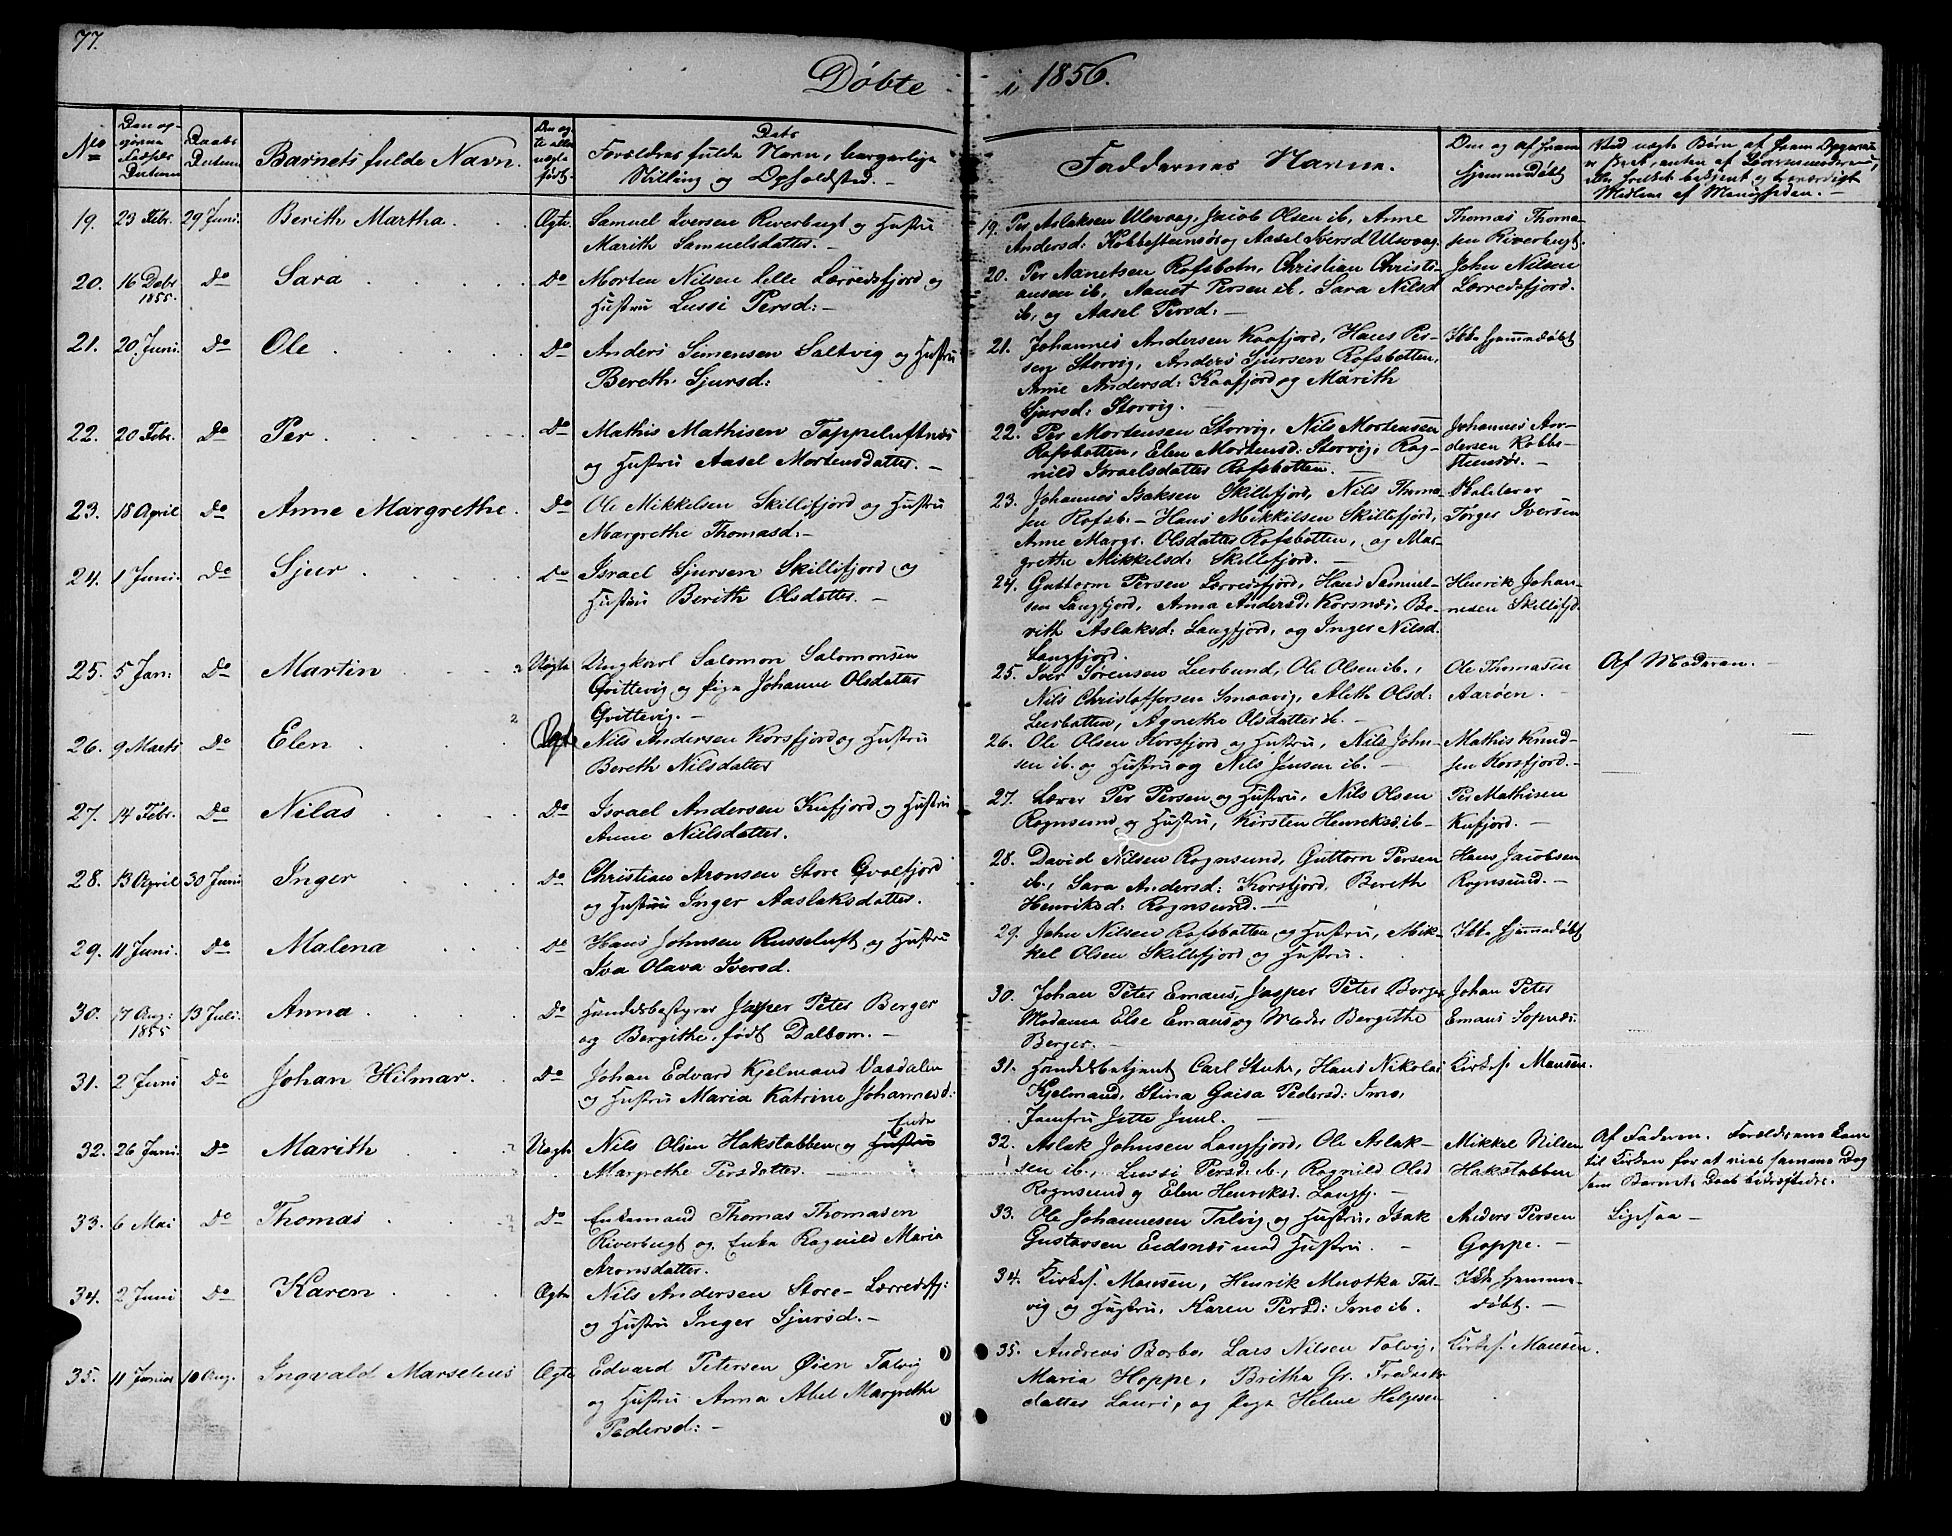 77.
Døbte i 1856.
No
Barnets fulde Navn.
Forældres fulde Navn, borgerlige
Stilling og Opholdsted.
Faddernes Navne.
19. 23 Febr. 29 Juni. Berith Martha Ægte. Samuel Iversen Riverbugt og Hustru
Marith Samuelsdatter.
19. Per Aslaksen Ulsvaag, Jacob Olsen ib, Anne
Andersd: Kobbesteinsør og Aasel Iversd Ulsvaag.
Thomas Thoma-
sen Riverbugt.
20. 16 Dcbr. 1855. Do Sara Do Morten Nilsen lille Lærredsfjord og
Hustru Lussi Persd:
20. Per Aanetsen Rafsbotn, Christian Christi-
ansen ib, Aanet Persen ib, Sara Nilsd
ib, og Aasel Persd:
John Nilsen
Lærredsfjord.
21. 20 Juni. Do Ole Do Anders Simensen Saltvig og Hustru
Bereth Sjursd:
21. Johannes Andersen Kaafjord, Hans Per-
sen Storvig, Anders Sjursen Rafsbotten,
Anne Andersd: Kaafjord og Marith
Sjursd: Storvig.
Ikke hjemmedøbt
22. 20 Febr. Do Per Do Mathis Mathisen Tappeluftnæs
og Hustru Aasel Mortensdatter.
22. Per Mortensen Storvig, Nils Mortensen
Rafsbotten, Elen Mortensd: Storvig, Rag-
nild Israelsdatter Rafsbotten.
Johannes An-
dersen Kobbe-
steinsør.
23. 18 April Do Anne Margrethe. Do Ole Mikkelsen Skillefjord og Hustru
Margrethe Thomasd:
23. Johannes Isaksen Skillefjord, Nils Thoma-
sen Rafsb. Hans Mikkelsen Skillefjord,
Anne Margr. Olsdatter Rafsbotten, og Mar-
grethe Mikkelsd: Skillefjord.
Skolelærer
Tørger Iversen
24. 1 Juni. Do Sjur Do Israel Sjursen Skillefjord og
Hustru Berith Olsdatter.
24. Guttorm Persen Lærredsfjord, Hans Samuel-
sen Langfjord, Anna Andersd: Korsnæs, Be-
rith Aslaksd: Langfjord, og Inger Nilsd.
Langfjord.
Henrik Johan-
nesen Skillefjd
25. 5 Jan: Do Martin Uægte Ungkarl Salomon Salomonsen
Qvittevig og Pige Johanne Olsdatter
Qvittevig.
25. Iver Sørensen Leerbund, Ole Olsen ib.,
Nils Christoffersen Smaavig, Aleth Olsd:
Leerbotten, Agnethe Olsdatter ib.
Ole Thomasen
Aarøen.
Af Moderen.
26. 9 Marts Do Elen Ægte Nils Andersen Korsfjord og Hustru
Bereth Nilsdatter
26. Ole Olsen Korsfjord og Hustru, Nils John-
sen ib. og Hustru og Nils Jensen ib.
Mathis Knud-
sen Korsfjord.
27. 14 Febr. Do Nilas Do Israel Andersen Kufjord og Hustru
Anne Nielsdatter.
27. Lærer Per Persen og Hustru, Nils Olsen
Rognsund og Hustru, Kirsten Henriksd. ib
Per Mathisen
Kufjord.
28. 13 April 30 Juni Inger Do Christian Aronsen Store Qvalfjord
og Hustru Inger Aaslaksdatter.
28. David Nilsen Rognsund, Guttorm Persen
ib., Sara Andersd: Korsfjord, Bereth
Henriksd: Rognsund.
Hans Jacobsen
Rognsund.
29. 11 Juni. Do Malena Do Hans Johnsen Russeluft og Hustru
Iva Olava Iversd.
29. John Nilsen Rafsbotten og Hustru, Mik-
kel Olsen Skillefjord og Hustru.
Ikke hjemmedøbt
30. 17 Aug: 1855 13 Juli. Anna Do Handelsbestyrer Jasper Peter Berger
og Bergithe, født Dalbom.
30. Johan Peter Emaus, Jasper Peter Berger
Madame Else Emaus og Moder Bergethe
Berger.
Johan Peter
Emaus Sopnæs.
31. 2 Juni Do Johan Hilmar. Do Johan Edvard Kjelmand Vasdalen
og Hustru Maria Katrine Johannesd:
31. Handelsbetjent Carl Stuhr, Hans Nikolai
Kjelmand, Stina Gaisa Pedersd: Imo,
Jomfru Jette Juul.
Kirkes. Monsen.
32. 26 Juni. Do Marith Uægte Nils Olsen Hakstabben og Enke
Margrethe Persdatter.
32. Aslak Johnsen Langfjord, Ole Aslak-
sen ib., Lussi Persd: ib., Ragnild Olsd
Rognsund og Elen Henriksd. Langfj.
Mikkel Nilsen
Hakstabben
Af Faderen. Forældrene kom
til Kirken for at vies samme Dag
som Barnets Daab bekræftedes.
33. 6 Mai Do Thomas Do Enkemand Thomas Thomasen
Riverbugt og Enke Ragnild Maria
Aronsdatter.
33. Ole Johannesen Talvig og Hustru, Isak
Gustavsen Eidsnæs med Hustru.
Anders Persen
Goppe.
Ligesaa
34. 2 Juni Do Karen Ægte Nils Andersen Store-Lærredsfj:
og Hustru Inger Sjursd.
34. Kirkes. Monsen, Henrik Muotka Tal-
vig og Hustru, Karen Persd: Imo ib.
Ikke hjemme-
døbt.
35. 11 Junii 10 Aug. Ingvald Marselius Ægte Edvard Petersen Øien Talvig
og Hustru Anna Abel Margrethe
Pedersd:
35. Andreas Borbo, Lars Nilsen Talvig,
Maria Hoppe, Britha Gr. Fredrik-
datter Lauri, og Pige Helene Helgesen
Kirkes. Monsen.